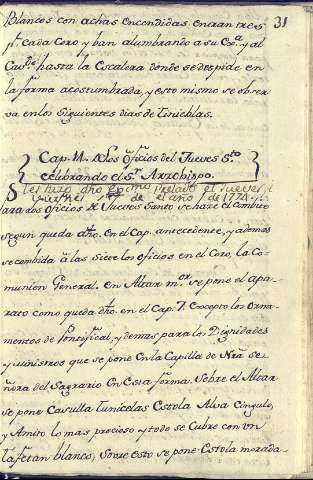 31
Blancos con achas encendidas entran tres
pr. cada Coro, y ban alumbrando a su Exa. y al
Cavdo. hasta la Escalera donde se despide en
la forma acostumbrada, y esto mismo se obser
va en los siguientes dias de Tinieblas.
Cap. 11. De los Oficios del Jueves Sto.
celibrando el Sr. Arzobispo.
hizo dho Exmo Prelado el Jueves,
de el año de 1774
Para los Oficios de Jueves Santo se haze el Combite
segun queda dho. En el Cap. antecedente, y ademas
se combida à las siete los oficios en el Coro, la Co-
munion General. en Altar mor. se pone el apa-
rato como queda dho. en el Cap. 7. Excepto los Orna-
mentos de Pontifical, y demas para los Dignidades
y ministros que se pone En la Capilla de Nra. Se-
ñora del Sagrario En esta forma. Sobre el Altar
se pone Casulla Tunicelas Estola Alva Cingulo,
y Amito lo mas precioso y todo se Cubre con vn
tafetan blanco, sovre esto se pone Estola morada